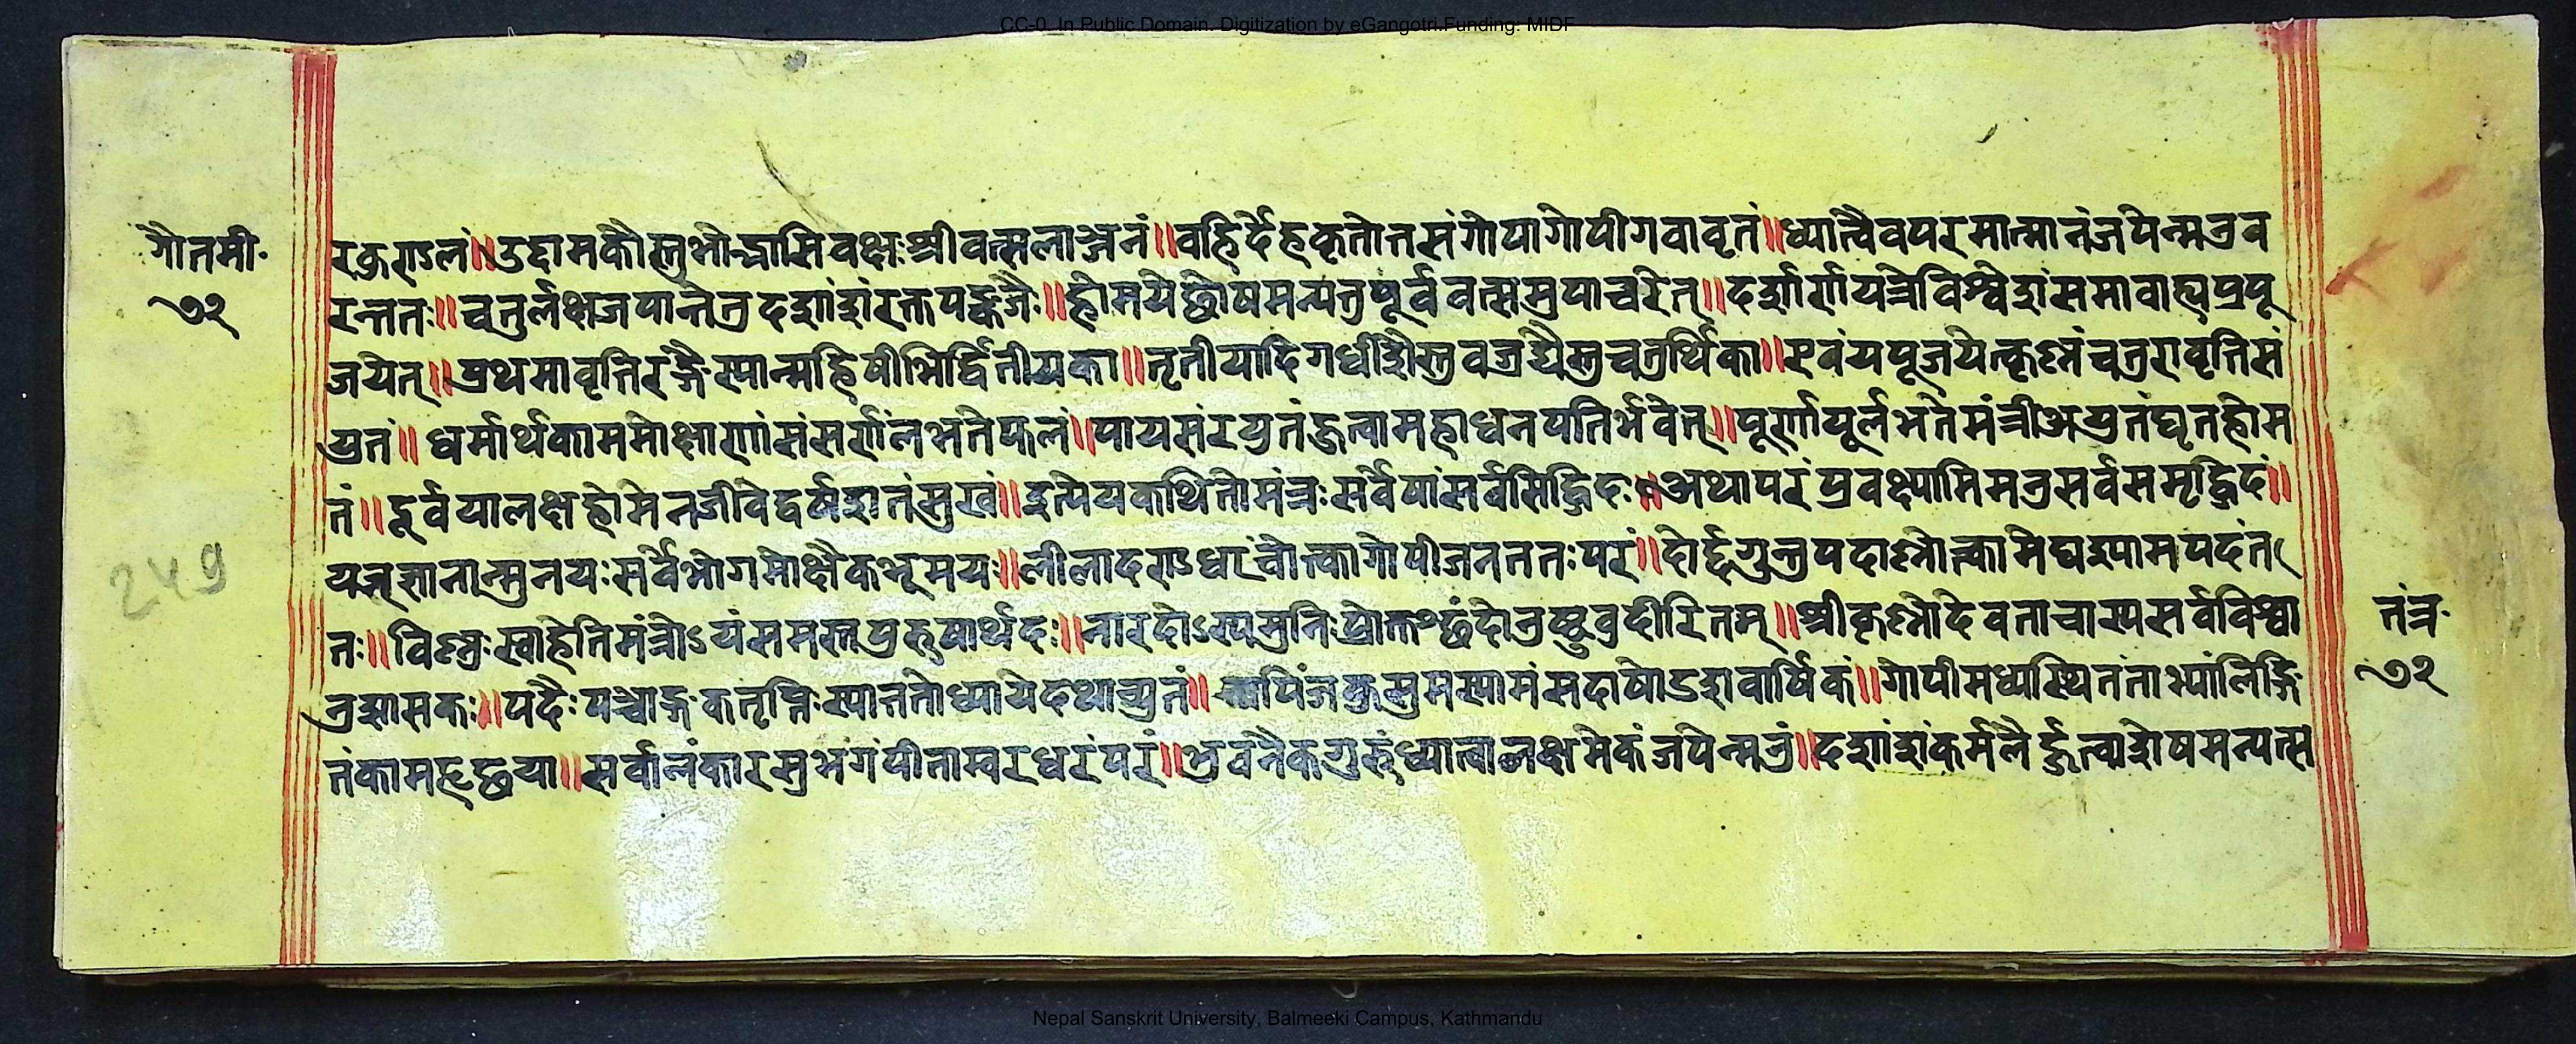 CC-0. In Public Domain. Digitization by eGangotri.Funding: MIDF
गौतमी॰
७२
रकुण्डलं॥उद्दामकौस्तुभोद्भासिवक्षःश्रीवत्सलाञ्छनं॥वर्हिर्देहकृतोत्तसंगोपागोपीगवावृतं॥ध्यात्वैवपरमात्मानंजपेन्मत्रव
रन्ततः॥चतुर्लक्षजपान्तेत्रदशांशंरक्तपङ्कजैः॥होमयेछेषमन्यत्तुपूर्ववत्समुपाचरेत्॥दशार्णयन्त्रेविश्वेशंसमावाह्यप्रपू
जयेत्॥प्रथमावृत्तिरङ्गैःस्यान्महिषीभिर्द्वितीयका॥तृतीयादिगधीशैस्तुवज्रद्यैस्तुचतुर्थिका॥एवंयपूजयेत्कृष्णंचतुरावृत्तिसं
युतं॥धर्मार्थकाममोक्षाणांसंसर्गंलभतेफलं॥पायसंरयुतंजुत्वामहाधनपतिर्भवेत्॥पूर्णायूर्लभतेमंत्रीअयुतंघृतहोम
तं॥दूर्वयालक्षहोमेनजीवेद्वर्षशतंसुखं॥इत्येयकथितोमंत्रःसर्वेषांसर्वसिद्धिदः॥अथापरंप्रवक्ष्यामिमत्रसर्वसमृद्धिदं॥
यत्ज्ञानान्मुनयःसर्वेभोगमोक्षैकभूमयः॥लीलादण्डधरांचोत्त्कागोपीजनततःपरं॥दोर्द्दगुन्तुपदाष्णोत्त्कामेघश्यामपदंत
तः॥विष्णुःस्वाहेतिमंत्रोऽयंसमस्तप्रुरुषार्थदः॥नारदोऽस्यमुनिःप्रोक्तश्छंदोनुष्टुवुदीरितम्॥श्रीकृष्णोदेवताचास्यसर्वविश्वा
नुशासकः॥पदैःपञ्चाङ्गःकतृप्तिःस्यात्ततोध्यायेदथाच्युतं॥कुसुमस्यामंसदाषोडशवार्षिकं॥गोपीमध्यस्थितंताभ्यांलिङ्गि
तंकामहृछया॥सर्वालंकारसुभगंपीताम्वरधरंपरं॥भुवनैकगुरुंध्यात्वालक्षमेकंजपेन्मत्रं॥दशांशंकमलैर्द्धुत्वाशेषमन्यत्स
तंत्र॰
७२
249
Nepal Sanskrit University, Balmeeki Campus, Kathmandu